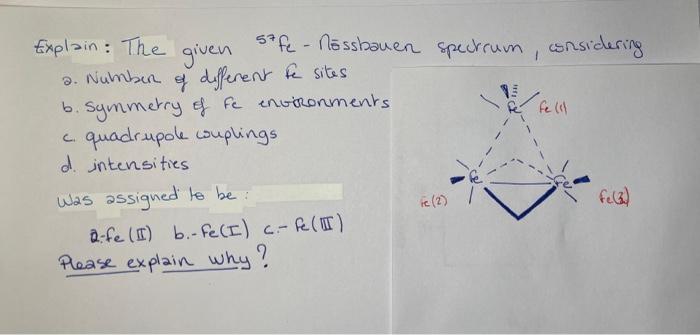 Explain: The given ⁵⁷Fe - Mössbauer spectrum, considering
a. Number of different Fe sites
b. Symmetry of Fe environments
c. quadrupole couplings
d. intensities
was assigned to be:
a-Fe(II) b.-Fe(I) c.-Fe(III)
Please explain why?
Fe Fe(1)
Fe Fe
Fe(2) Fe(3)